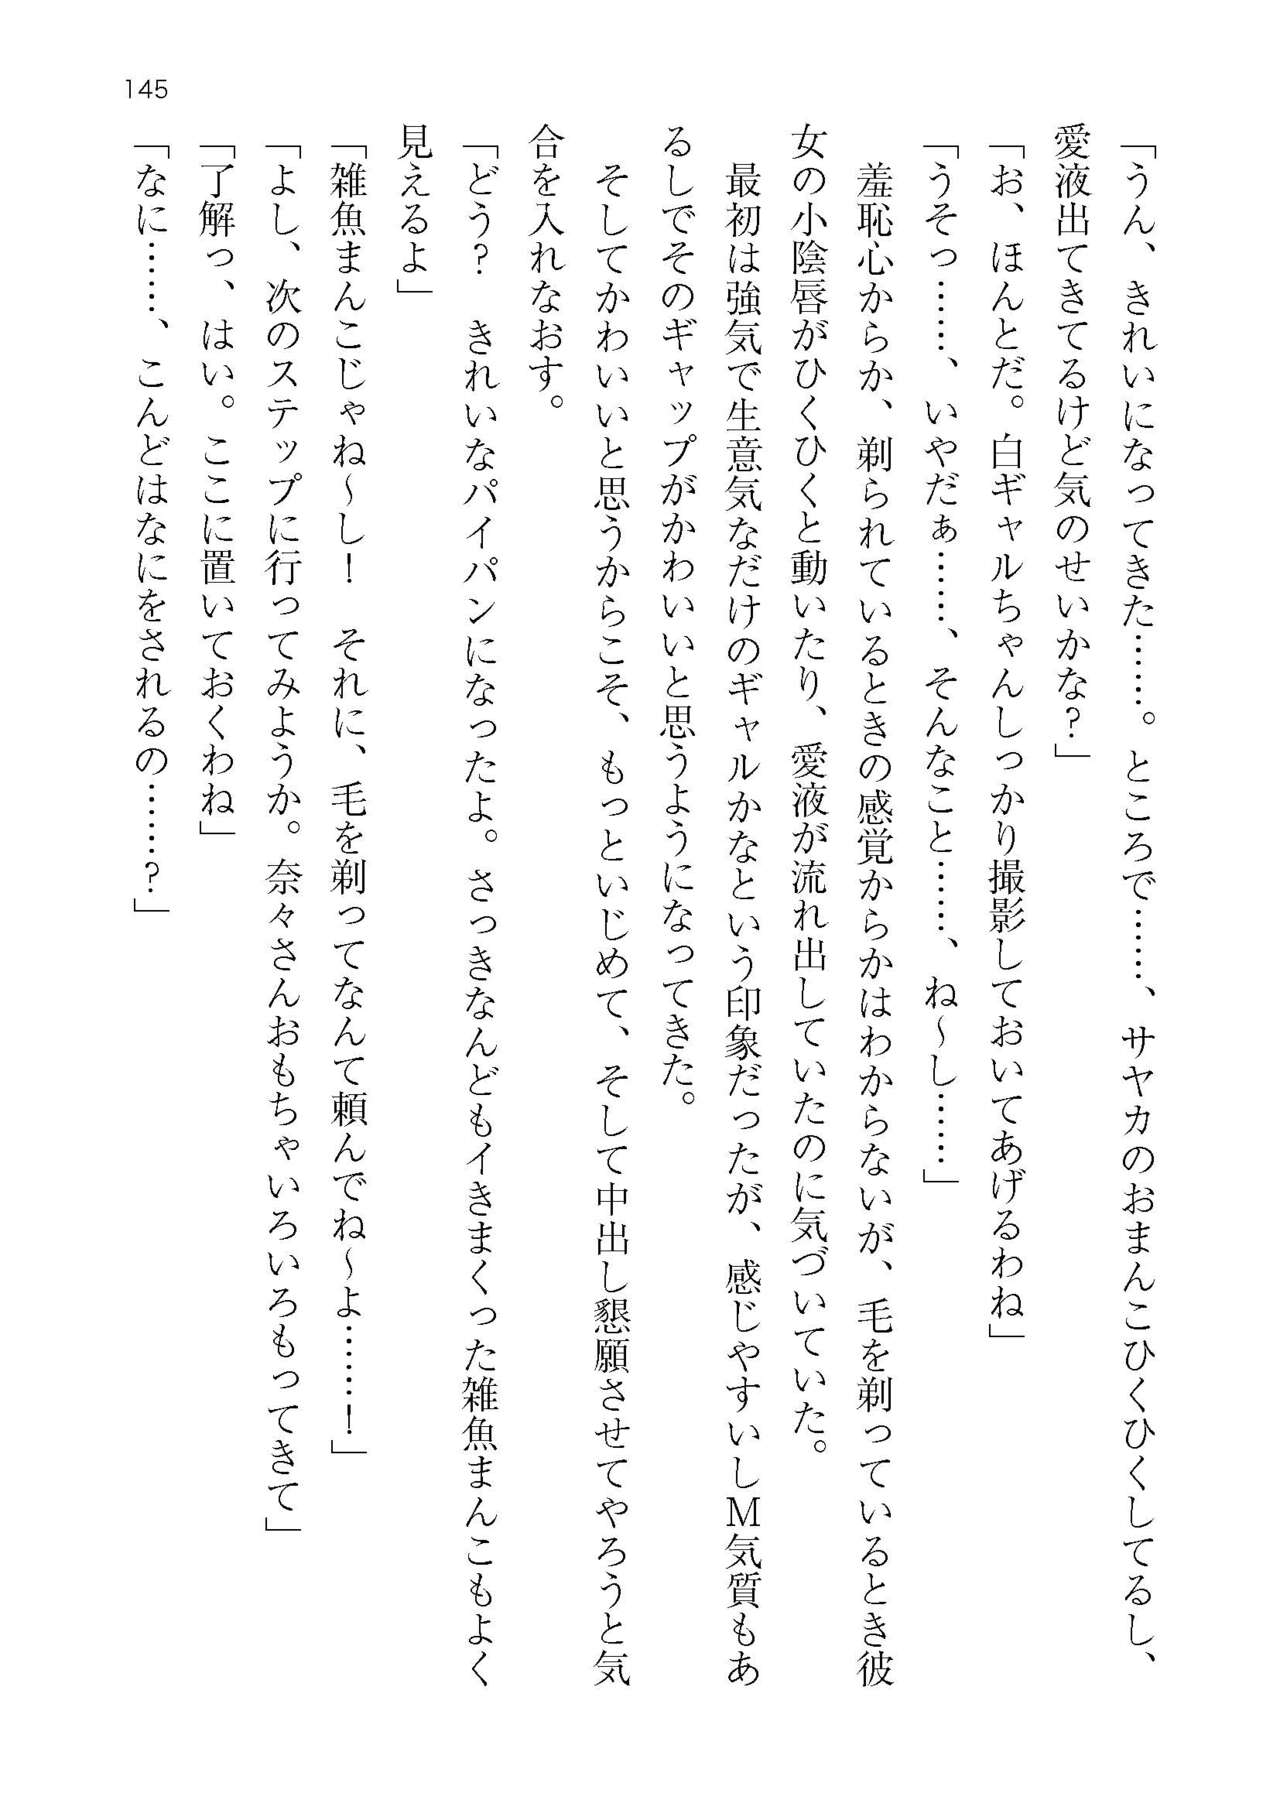 145
「うん、きれいになってきた……。ところで……、サヤカのおまんこひくひくしてるし、
愛液出てきてるけど気のせいかな？」
「お、ほんとだ。白ギャルちゃんしっかり撮影しておいてあげるわね」
「うそっ……、いやだぁ……、そんなこと……、ね～し……」
　羞恥心からか、剃られているときの感覚からかはわからないが、毛を剃っているとき彼
女の小陰唇がひくひくと動いたり、愛液が流れ出していたのに気づいていた。
　最初は強気で生意気なだけのギャルかなという印象だったが、感じやすいしＭ気質もあ
るしでそのギャップがかわいいと思うようになってきた。
　そしてかわいいと思うからこそ、もっといじめて、そして中出し懇願させてやろうと気
合を入れなおす。
「どう？　きれいなパイパンになったよ。さっきなんどもイきまくった雑魚まんこもよく
見えるよ」
「雑魚まんこじゃね～し！　それに、毛を剃ってなんて頼んでね～よ……！」
「よし、次のステップに行ってみようか。奈々さんおもちゃいろいろもってきて」
「了解っ、はい。ここに置いておくわね」
「なに……、こんどはなにをされるの……？」